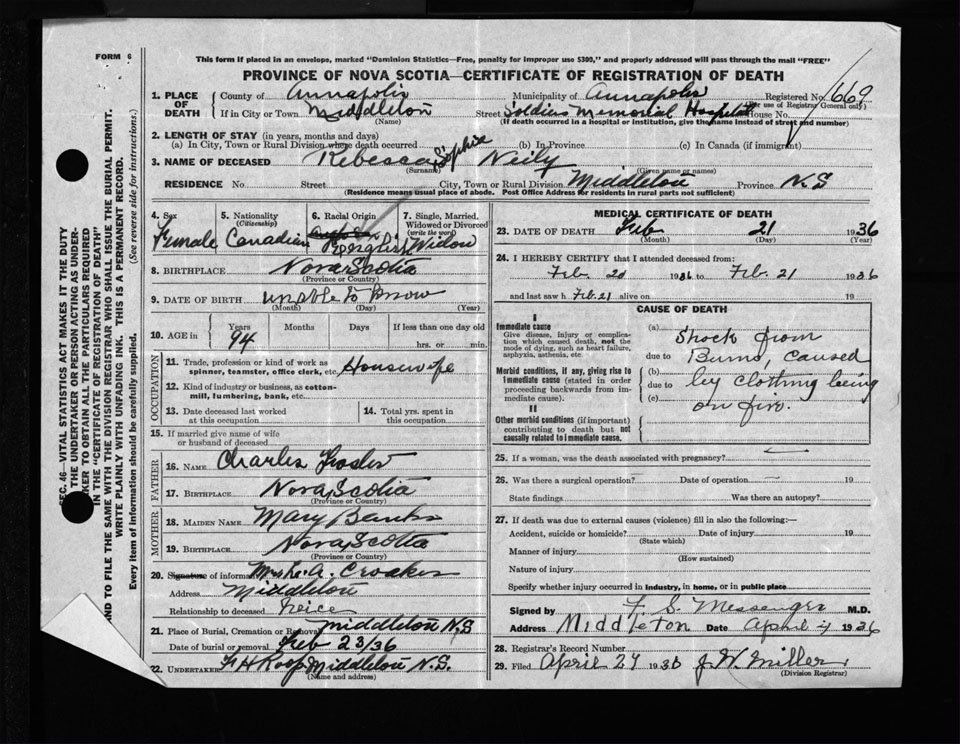 FORM 6
This form if placed in an envelope, marked "Dominion Statistics—Free, penalty for improper use $300," and properly addressed will pass through the mail "FREE"
PROVINCE OF NOVA SCOTIA—CERTIFICATE OF REGISTRATION OF DEATH
1. PLACE OF DEATH County of Annapolis Municipality of Annapolis Registered No. 669
(For use of Registrar General only)
If in City or Town Middleton Street Soldiers Memorial Hospital House No.
(Name) (If death occurred in a hospital or institution, give the name instead of street and number)
2. LENGTH OF STAY (in years, months and days)
(a) In City, Town or Rural Division where death occurred (b) In Province (c) In Canada (if immigrant)
3. NAME OF DECEASED Rebecca Sophie Neily
(Surname) (Given name or names)
RESIDENCE No. Street City, Town or Rural Division Middleton Province N.S
(Residence means usual place of abode. Post Office Address for residents in rural parts not sufficient)
4. Sex Female
5. Nationality (Citizenship) Canadian
6. Racial Origin English
7. Single, Married, Widowed or Divorced (write the word) Widow
8. BIRTHPLACE Nova Scotia
(Province or Country)
9. DATE OF BIRTH unable to know
(Month) (Day) (Year)
10. AGE in Years 94 Months Days If less than one day old hrs. or min.
OCCUPATION
11. Trade, profession or kind of work as spinner, teamster, office clerk, etc. Housewife
12. Kind of industry or business, as cotton-mill, lumbering, bank, etc.
13. Date deceased last worked at this occupation
14. Total yrs. spent in this occupation
15. If married give name of wife or husband of deceased
FATHER
16. NAME Charles Foster
17. BIRTHPLACE Nova Scotia
(Province or Country)
MOTHER
18. MAIDEN NAME Mary Banks
19. BIRTHPLACE Nova Scotia
(Province or Country)
20. Signature of informant Mrs L. A. Croaker
Address Middleton
Relationship to deceased Neice
21. Place of Burial, Cremation or Removal Middleton N.S
Date of burial or removal Feb 23/36
22. UNDERTAKER F H Roop Middleton N.S.
(Name and address)
MEDICAL CERTIFICATE OF DEATH
23. DATE OF DEATH Feb 21 1936
(Month) (Day) (Year)
24. I HEREBY CERTIFY that I attended deceased from:
Feb. 20 1936 to Feb. 21 1936
and last saw h Feb. 21 alive on 19
CAUSE OF DEATH
I
Immediate cause
Give disease, injury or complication which caused death, not the mode of dying, such as heart failure, asphyxia, asthenia, etc.
Morbid conditions, if any, giving rise to immediate cause (stated in order proceeding backwards from immediate cause).
II
Other morbid conditions (if important) contributing to death but not causally related to immediate cause.
(a) Shock from
due to Burns, caused
(b)
due to by clothing being
(c) on fire.
25. If a woman, was the death associated with pregnancy?
26. Was there a surgical operation? Date of operation 19
State findings Was there an autopsy?
27. If death was due to external causes (violence) fill in also the following:—
Accident, suicide or homicide? Date of injury 19
(State which)
Manner of injury
(How sustained)
Nature of injury
Specify whether injury occurred in industry, in home, or in public place
Signed by F. S. Messenger M.D.
Address Middleton Date April 1936
28. Registrar's Record Number
29. Filed April 27 1936 J. W. Miller
(Division Registrar)
SEC. 46—VITAL STATISTICS ACT MAKES IT THE DUTY
THE UNDERTAKER OR PERSON ACTING AS UNDER-
KER TO OBTAIN ALL THE PARTICULARS REQUIRED
IN THE "CERTIFICATE OF REGISTRATION OF DEATH"
ND TO FILE THE SAME WITH THE DIVISION REGISTRAR WHO SHALL ISSUE THE BURIAL PERMIT.
WRITE PLAINLY WITH UNFADING INK. THIS IS A PERMANENT RECORD.
Every item of information should be carefully supplied. (See reverse side for instructions.)